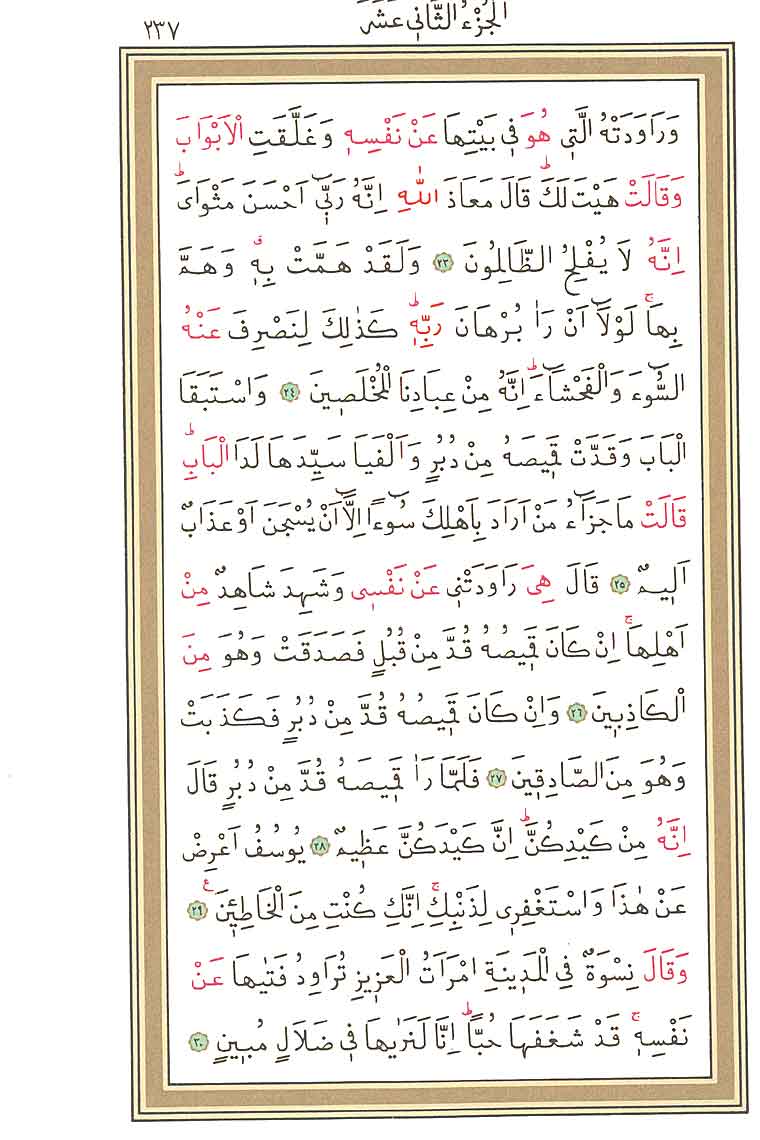 اَلْجُزْءُ الثَّانِي عَشَرَ
٢٣٧
وَرَاوَدَتْهُ الَّتٖي هُوَ فٖي بَيْتِهَا عَنْ نَفْسِهٖ وَغَلَّقَتِ الْاَبْوَابَ
وَقَالَتْ هَيْتَ لَكَؕ قَالَ مَعَاذَ اللّٰهِ اِنَّهُ رَبّٖٓي اَحْسَنَ مَثْوَايَؕ
اِنَّهُ لَا يُفْلِحُ الظَّالِمُونَ ﴿٢٣﴾ وَلَقَدْ هَمَّتْ بِهٖۗ وَهَمَّ
بِهَاۚ لَوْلَٓا اَنْ رَاٰ بُرْهَانَ رَبِّهٖؕ كَذٰلِكَ لِنَصْرِفَ عَنْهُ
السُّٓوءَ وَالْفَحْشَٓاءَؕ اِنَّهُ مِنْ عِبَادِنَا الْمُخْلَصٖينَ ﴿٢٤﴾ وَاسْتَبَقَا
الْبَابَ وَقَدَّتْ قَمٖيصَهُ مِنْ دُبُرٍ وَاَلْفَيَا سَيِّدَهَا لَدَا الْبَابِؕ
قَالَتْ مَا جَزَٓاءُ مَنْ اَرَادَ بِاَهْلِكَ سُٓوءًا اِلَّٓا اَنْ يُسْجَنَ اَوْ عَذَابٌ
اَلٖيمٌ ﴿٢٥﴾ قَالَ هِيَ رَاوَدَتْنٖي عَنْ نَفْسٖي وَشَهِدَ شَاهِدٌ مِنْ
اَهْلِهَاۚ اِنْ كَانَ قَمٖيصُهُ قُدَّ مِنْ قُبُلٍ فَصَدَقَتْ وَهُوَ مِنَ
الْكَاذِبٖينَ ﴿٢٦﴾ وَاِنْ كَانَ قَمٖيصُهُ قُدَّ مِنْ دُبُرٍ فَكَذَبَتْ
وَهُوَ مِنَ الصَّادِقٖينَ ﴿٢٧﴾ فَلَمَّا رَاٰ قَمٖيصَهُ قُدَّ مِنْ دُبُرٍ قَالَ
اِنَّهُ مِنْ كَيْدِكُنَّؕ اِنَّ كَيْدَكُنَّ عَظٖيمٌ ﴿٢٨﴾ يُوسُفُ اَعْرِضْ
عَنْ هٰذَا وَاسْتَغْفِرٖي لِذَنْبِكِۚ اِنَّكِ كُنْتِ مِنَ الْخَاطِـٖٔينَ ع ﴿٢٩﴾
وَقَالَ نِسْوَةٌ فِي الْمَدٖينَةِ امْرَاَتُ الْعَزٖيزِ تُرَاوِدُ فَتٰيهَا عَنْ
نَفْسِهٖۚ قَدْ شَغَفَهَا حُبًّاؕ اِنَّا لَنَرٰيهَا فٖي ضَلَالٍ مُبٖينٍ ﴿٣٠﴾